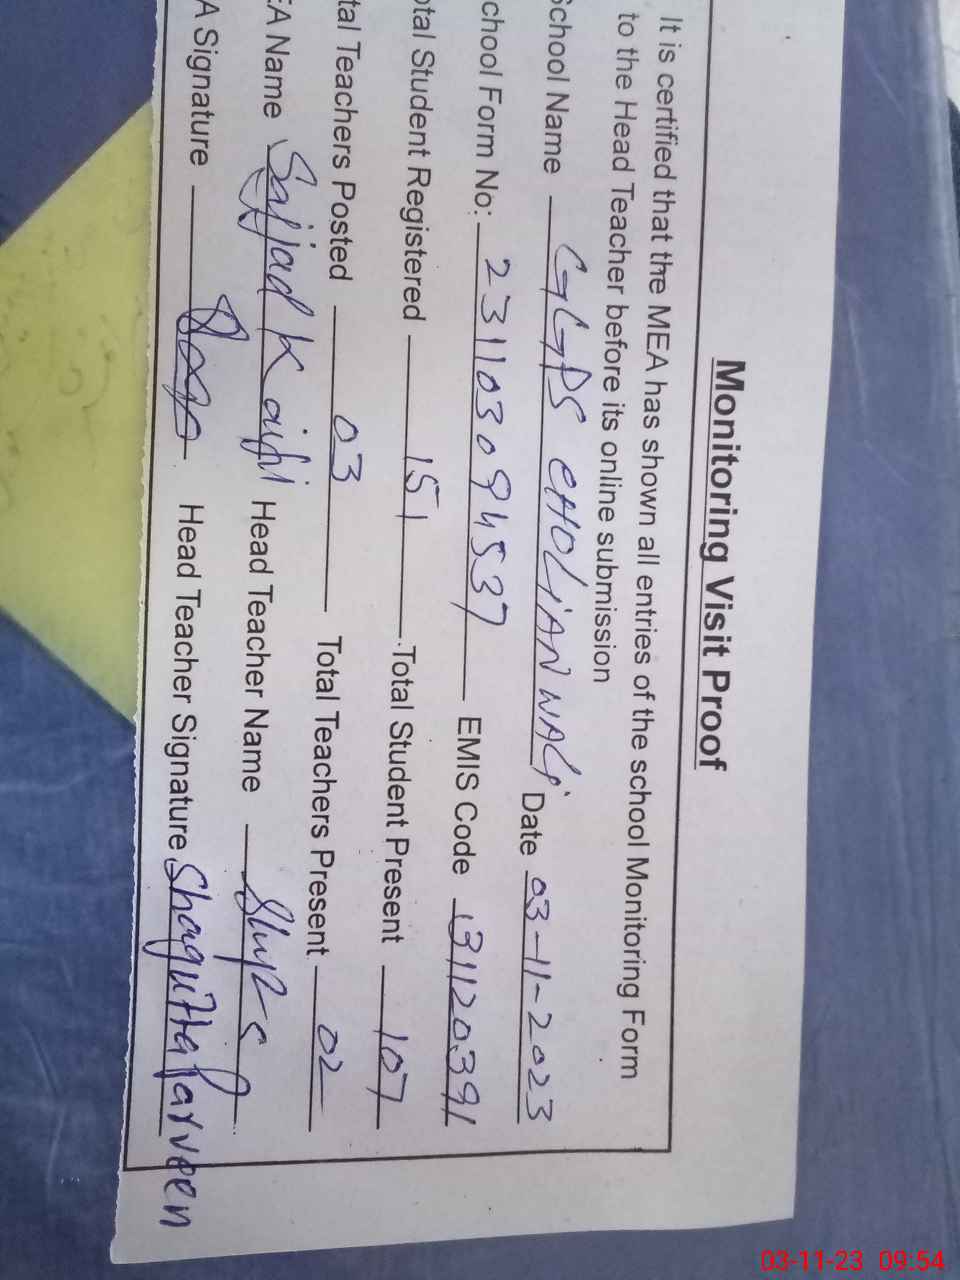 Monitoring Visit Proof
It is certified that the MEA has shown all entries of the school Monitoring Form
to the Head Teacher before its online submission
School Name GGPS CHOLIAN WALi Date 03-11-2023
chool Form No: 231103094537 EMIS Code 31120391
otal Student Registered 151 Total Student Present 107
tal Teachers Posted 03 Total Teachers Present 02
EA Name Sajjad Kaifi Head Teacher Name
A Signature Head Teacher Signature Shagufta Parveen
03-11-23 09:54